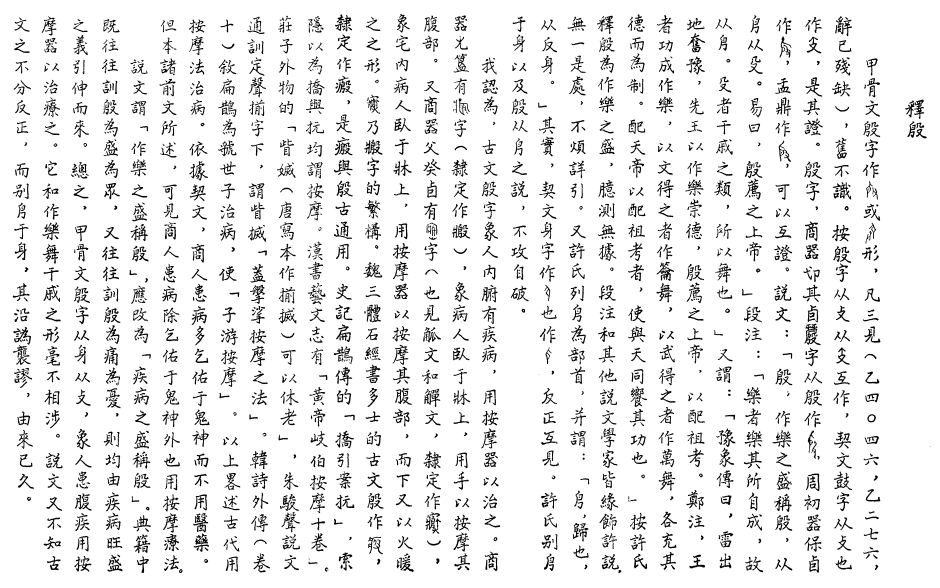 釋殷
甲骨文殷字作或形，凡三見（乙四〇四六，乙二七六，
辭已殘缺），舊不識。按殷字从攴从殳互作，契文鼓字从攴也
作殳，是其證。殷字，商器切其卣字从殷作，周初器保卣
作，盂鼎作，可以互證。說文：「殷，作樂之盛稱殷，从
㐆从殳。易曰，殷薦之上帝。」段注：「樂者樂其所自成，故
从㐆。殳者干戚之類，所以舞也。」又謂：「豫象傳曰，雷出
地奮豫，先王以作樂崇德，殷薦之上帝，以配祖考。鄭注，王
者功成作樂，以文得之者作籥舞，以武得之者作萬舞，各充其
德而為制。配天帝以配祖考者，使與天同饗其功也。」按許氏
釋殷為作樂之盛，臆測無據。段注和其他說文學家皆緣飾許說，
無一是處，不煩詳引。又許氏列㐆為部首，并謂：「㐆，歸也，
从反身。」其實，契文身字作也作，反正互見。許氏別㐆
于身以及殷从㐆之說，不攻自破。
我認為，古文殷字象人內腑有疾病，用按摩器以治之。商
器尤簋有字（隸定作㾲），象病人臥于牀上，用手以按摩其
腹部。又商器父癸卣有字（也見觚文和觶文，隸定作），
象宅內病人臥于牀上，用按摩器以按摩其腹部，而下又以火暖
之之形。乃字的繁構。魏三體石經書多士的古文殷作，
隸定作㿈，是與殷古通用。史記扁鵲傳的「撟引案抏」，索
隱以為撟與抏均謂按摩。漢書藝文志有「黃帝岐伯按摩十卷」。
莊子外物的「眥㓕（唐寫本作揃搣）可以休老」，朱駿聲說文
通訓定聲揃字下，謂眥搣「蓋摩挲按摩之法」。韓詩外傳（卷
十）敘扁鵲為虢世子治病，使「子游按摩」。以上略述古代用
按摩法治病。依據契文，商人患病多乞佑于鬼神而不用醫藥。
但本諸前文所述，可見商人患病除乞佑于鬼神外也用按摩療法。
說文謂「作樂之盛稱殷」，應改為「疾病之盛稱殷」。典籍中
既往往訓殷為盛為眾，又往往訓殷為痛為憂，則均由疾病旺盛
之義引伸而來。總之，甲骨文殷字从身从攴，象人患腹疾用按
摩器以治療之。它和作樂舞干戚之形毫不相涉。說文又不知古
文之不分反正，而別㐆于身，其沿譌襲謬，由來已久。